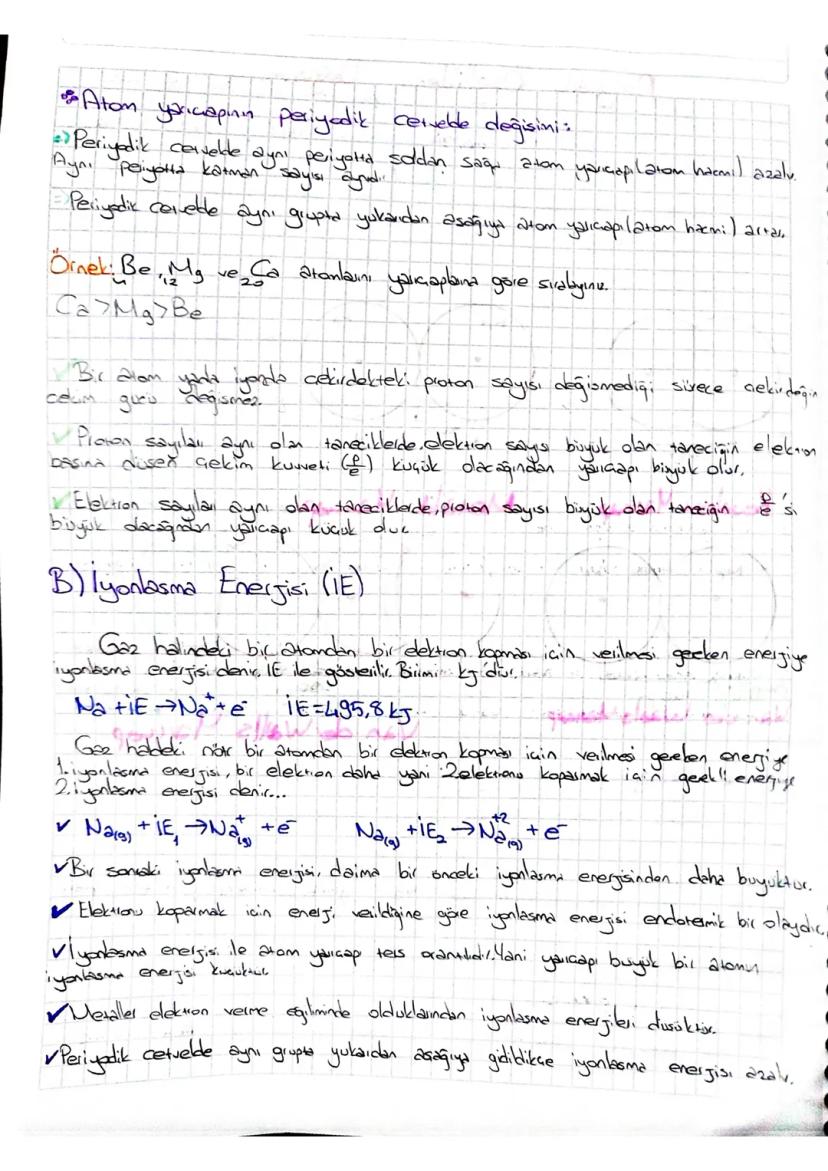 * Atom yarıçapının periyodik cetvelde değişimi:
=> Periyodik cetvelde aynı periyotta soldan sağa atom yarıçapı(atom hacmi) azalır.
Aynı periyotta katman sayısı aynıdır.
=> Periyodik cetvelde aynı grupta yukarıdan aşağıya atom yarıçapı(atom hacmi) artar.
Örnek: ₄Be, ₁₂Mg ve ₂₀Ca atomlarını yarıçaplarına göre sıralayınız.
Ca>Mg>Be
✓ Bir atom yada iyonda çekirdekteki proton sayısı değişmediği sürece çekirdeğin
çekim gücü değişmez.
✓ Proton sayıları aynı olan taneciklerde, elektron sayısı büyük olan taneciğin elektron
başına düşen çekim kuvveti (p/e) küçük olacağından yarıçapı büyük olur.
✓ Elektron sayıları aynı olan taneciklerde, proton sayısı büyük olan taneciğin p/e 'si
büyük olacağından yarıçapı küçük olur.
B) İyonlaşma Enerjisi (İE)
Gaz halindeki bir atomdan bir elektron kopması için verilmesi gereken enerjiye
iyonlaşma enerjisi denir. İE ile gösterilir. Birimi kj'dür.
Na + İE → Na⁺ + e⁻ İE=495,8 kj
Gaz haldeki nötr bir atomdan bir elektron kopması için verilmesi gereken enerjiye
1. iyonlaşma enerjisi, bir elektron daha yani 2 elektronu koparmak için gerekli enerjiye
2. iyonlaşma enerjisi denir...
✓ Na(g) + İE₁ → Na⁺(g) + e⁻ Na(g) + İE₂ → Na⁺²(g) + e⁻
✓ Bir sonraki iyonlaşma enerjisi, daima bir önceki iyonlaşma enerjisinden daha büyüktür.
✓ Elektronu koparmak için enerji verildiğine göre iyonlaşma enerjisi endotermik bir olaydır.
✓ İyonlaşma enerjisi ile atom yarıçap ters orantılıdır. Yani yarıçapı büyük bir atomun
iyonlaşma enerjisi küçüktür
✓ Metaller elektron verme eğiliminde olduklarından iyonlaşma enerjileri düşüktür.
✓ Periyodik cetvelde aynı grupta yukarıdan aşağıya gidildikçe iyonlaşma enerjisi azalır.